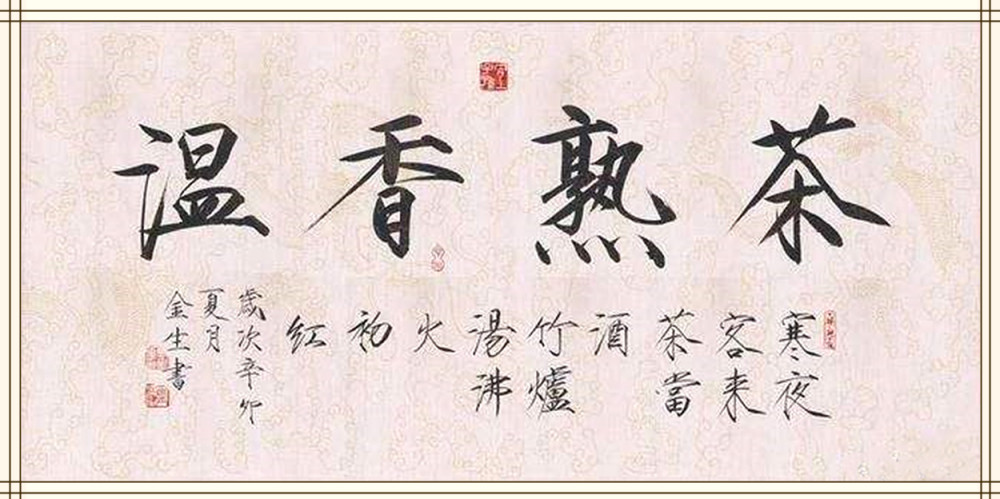 茶熟香温
寒夜
客来
茶當
酒
竹爐
湯沸
火
初
红
歲次辛卯
夏月
金生書